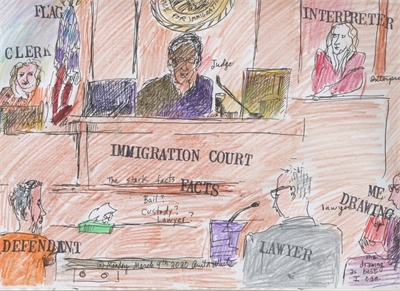 FOR IMMIGRATION
FLAG
INTERPRETER
CLERK
Judge
IMMIGRATION COURT
The stark facts
FACTS
Bail?
Custody?
Lawyer?
ME
DRAWING
lawyer
DEFENDENT
LAWYER
Monday March 9th 2020
Me
drawing
as best
I can